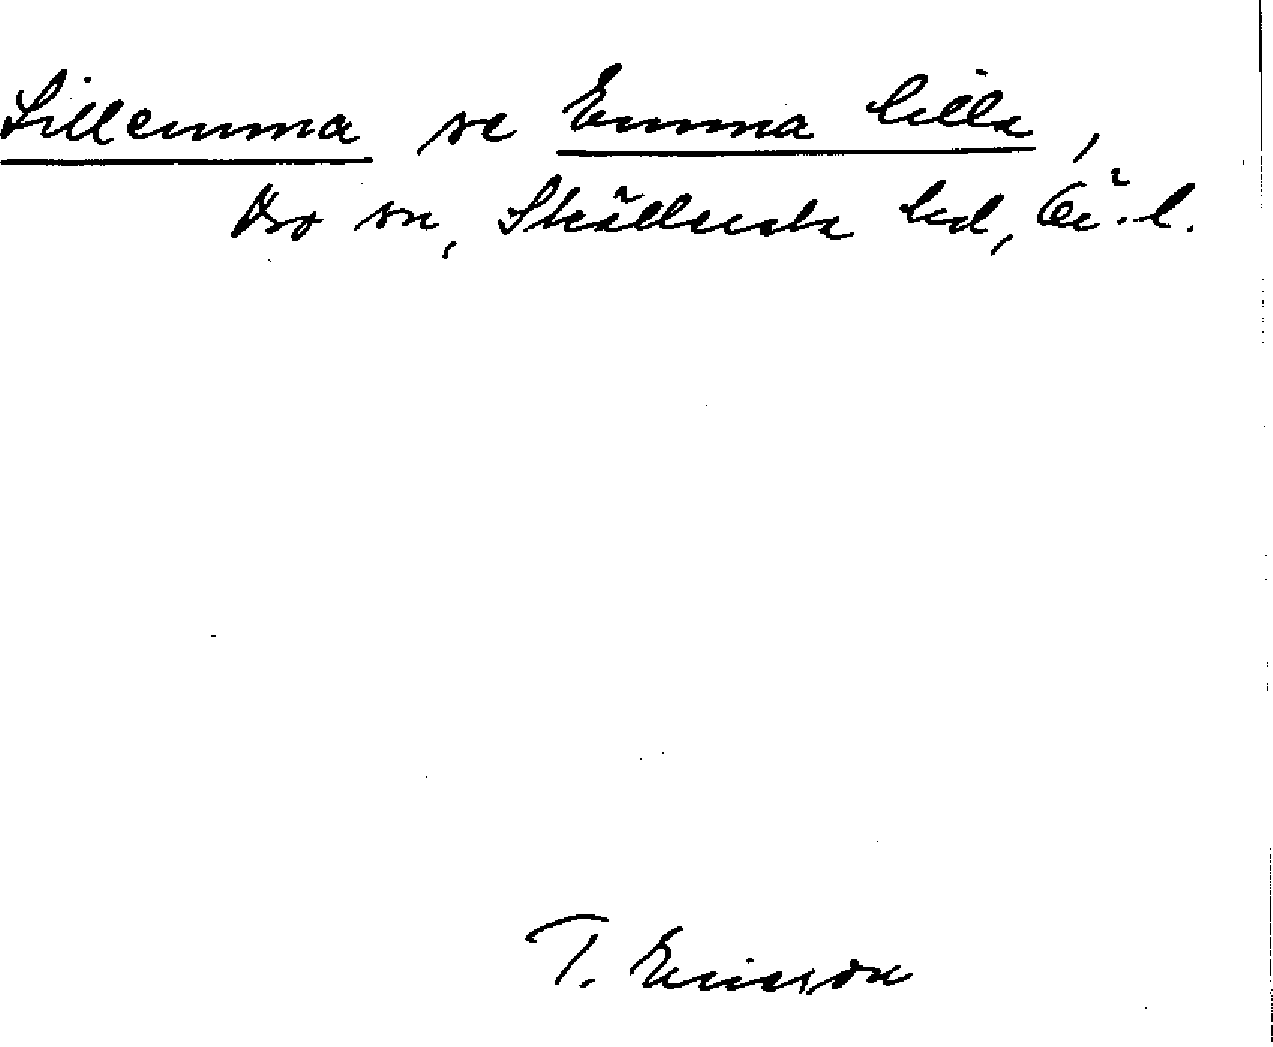 Lillemma se Emma lilla,
Oso sn, Skällersta hd, Ör. l.
T. Ericsson